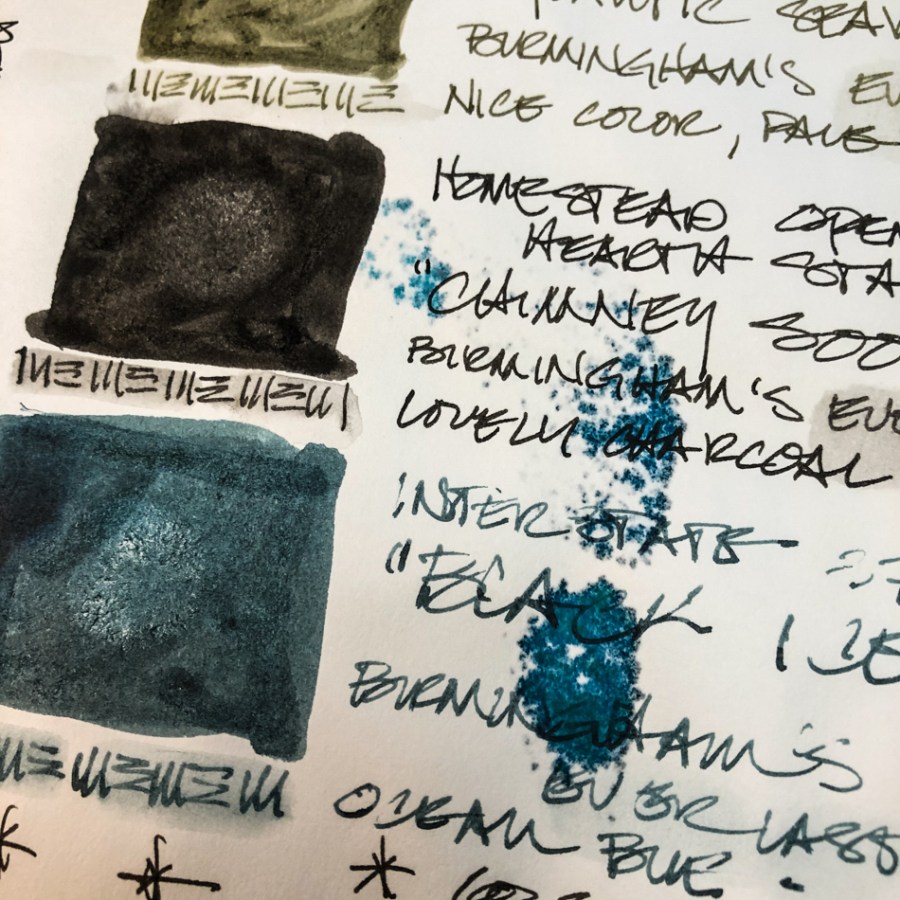 BURMINGHAM'S EV
NICE COLOR, PALE
HOMESTEAD OPEN
HEARTH STA
"CHIMNEY SOO
BURMINGHAM'S EVE
LOVELY CHARCOAL
INTERSTATE
"BLACK ICE
BURMINGHAM'S
EVERLASS
OCEAN BLUE.